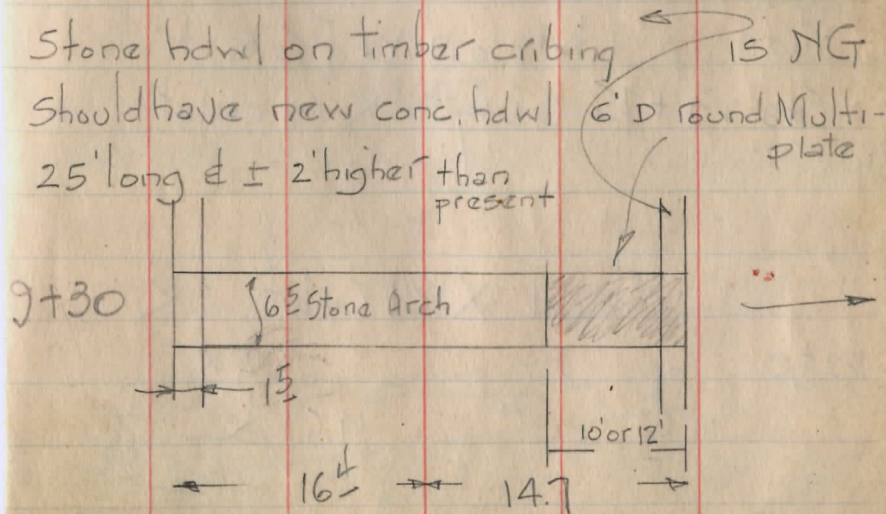 Stone hdwl on timber cribing is NG
Should have new conc. hdwl 6' D round Multi-
plate
25' long & ± 2' higher than
present
9+30
6 5 Stone Arch
1 5
10' or 12'
16 4
14.7